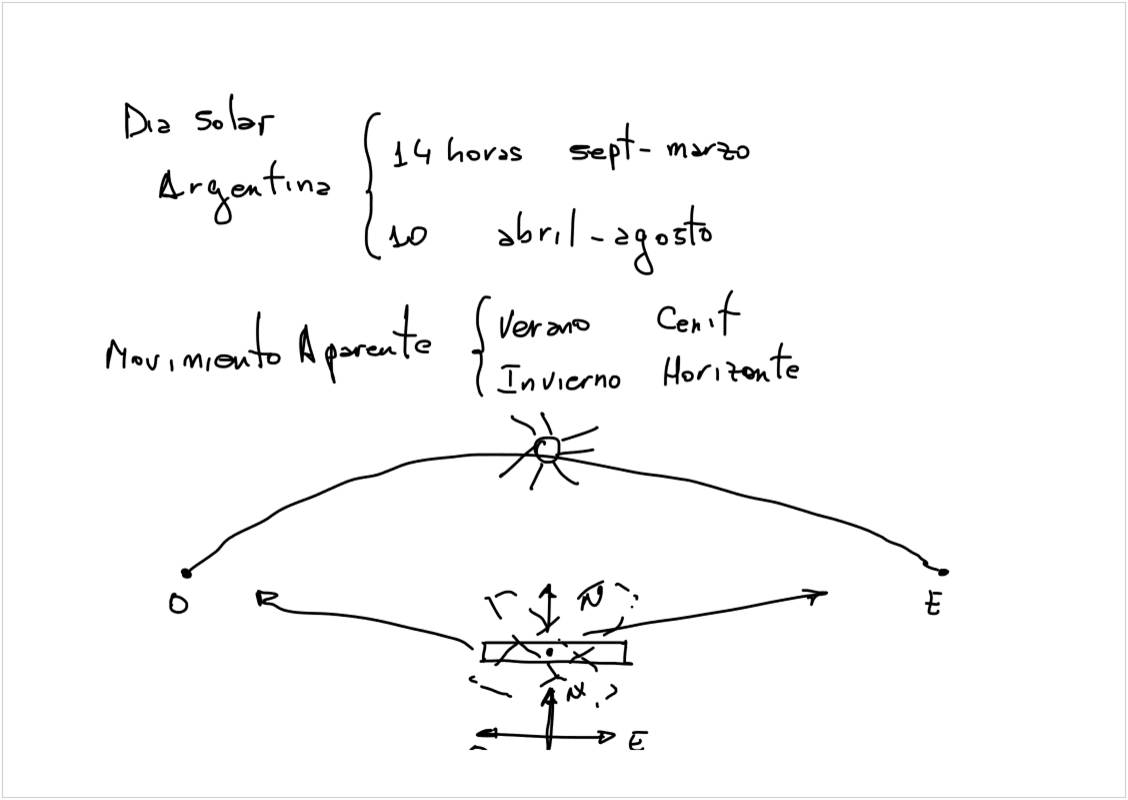 Dia solar
Argentina
14 horas sept - marzo
10 abril - agosto
Movimiento Aparente
Verano Cenit
Invierno Horizonte
O E
N
N
E